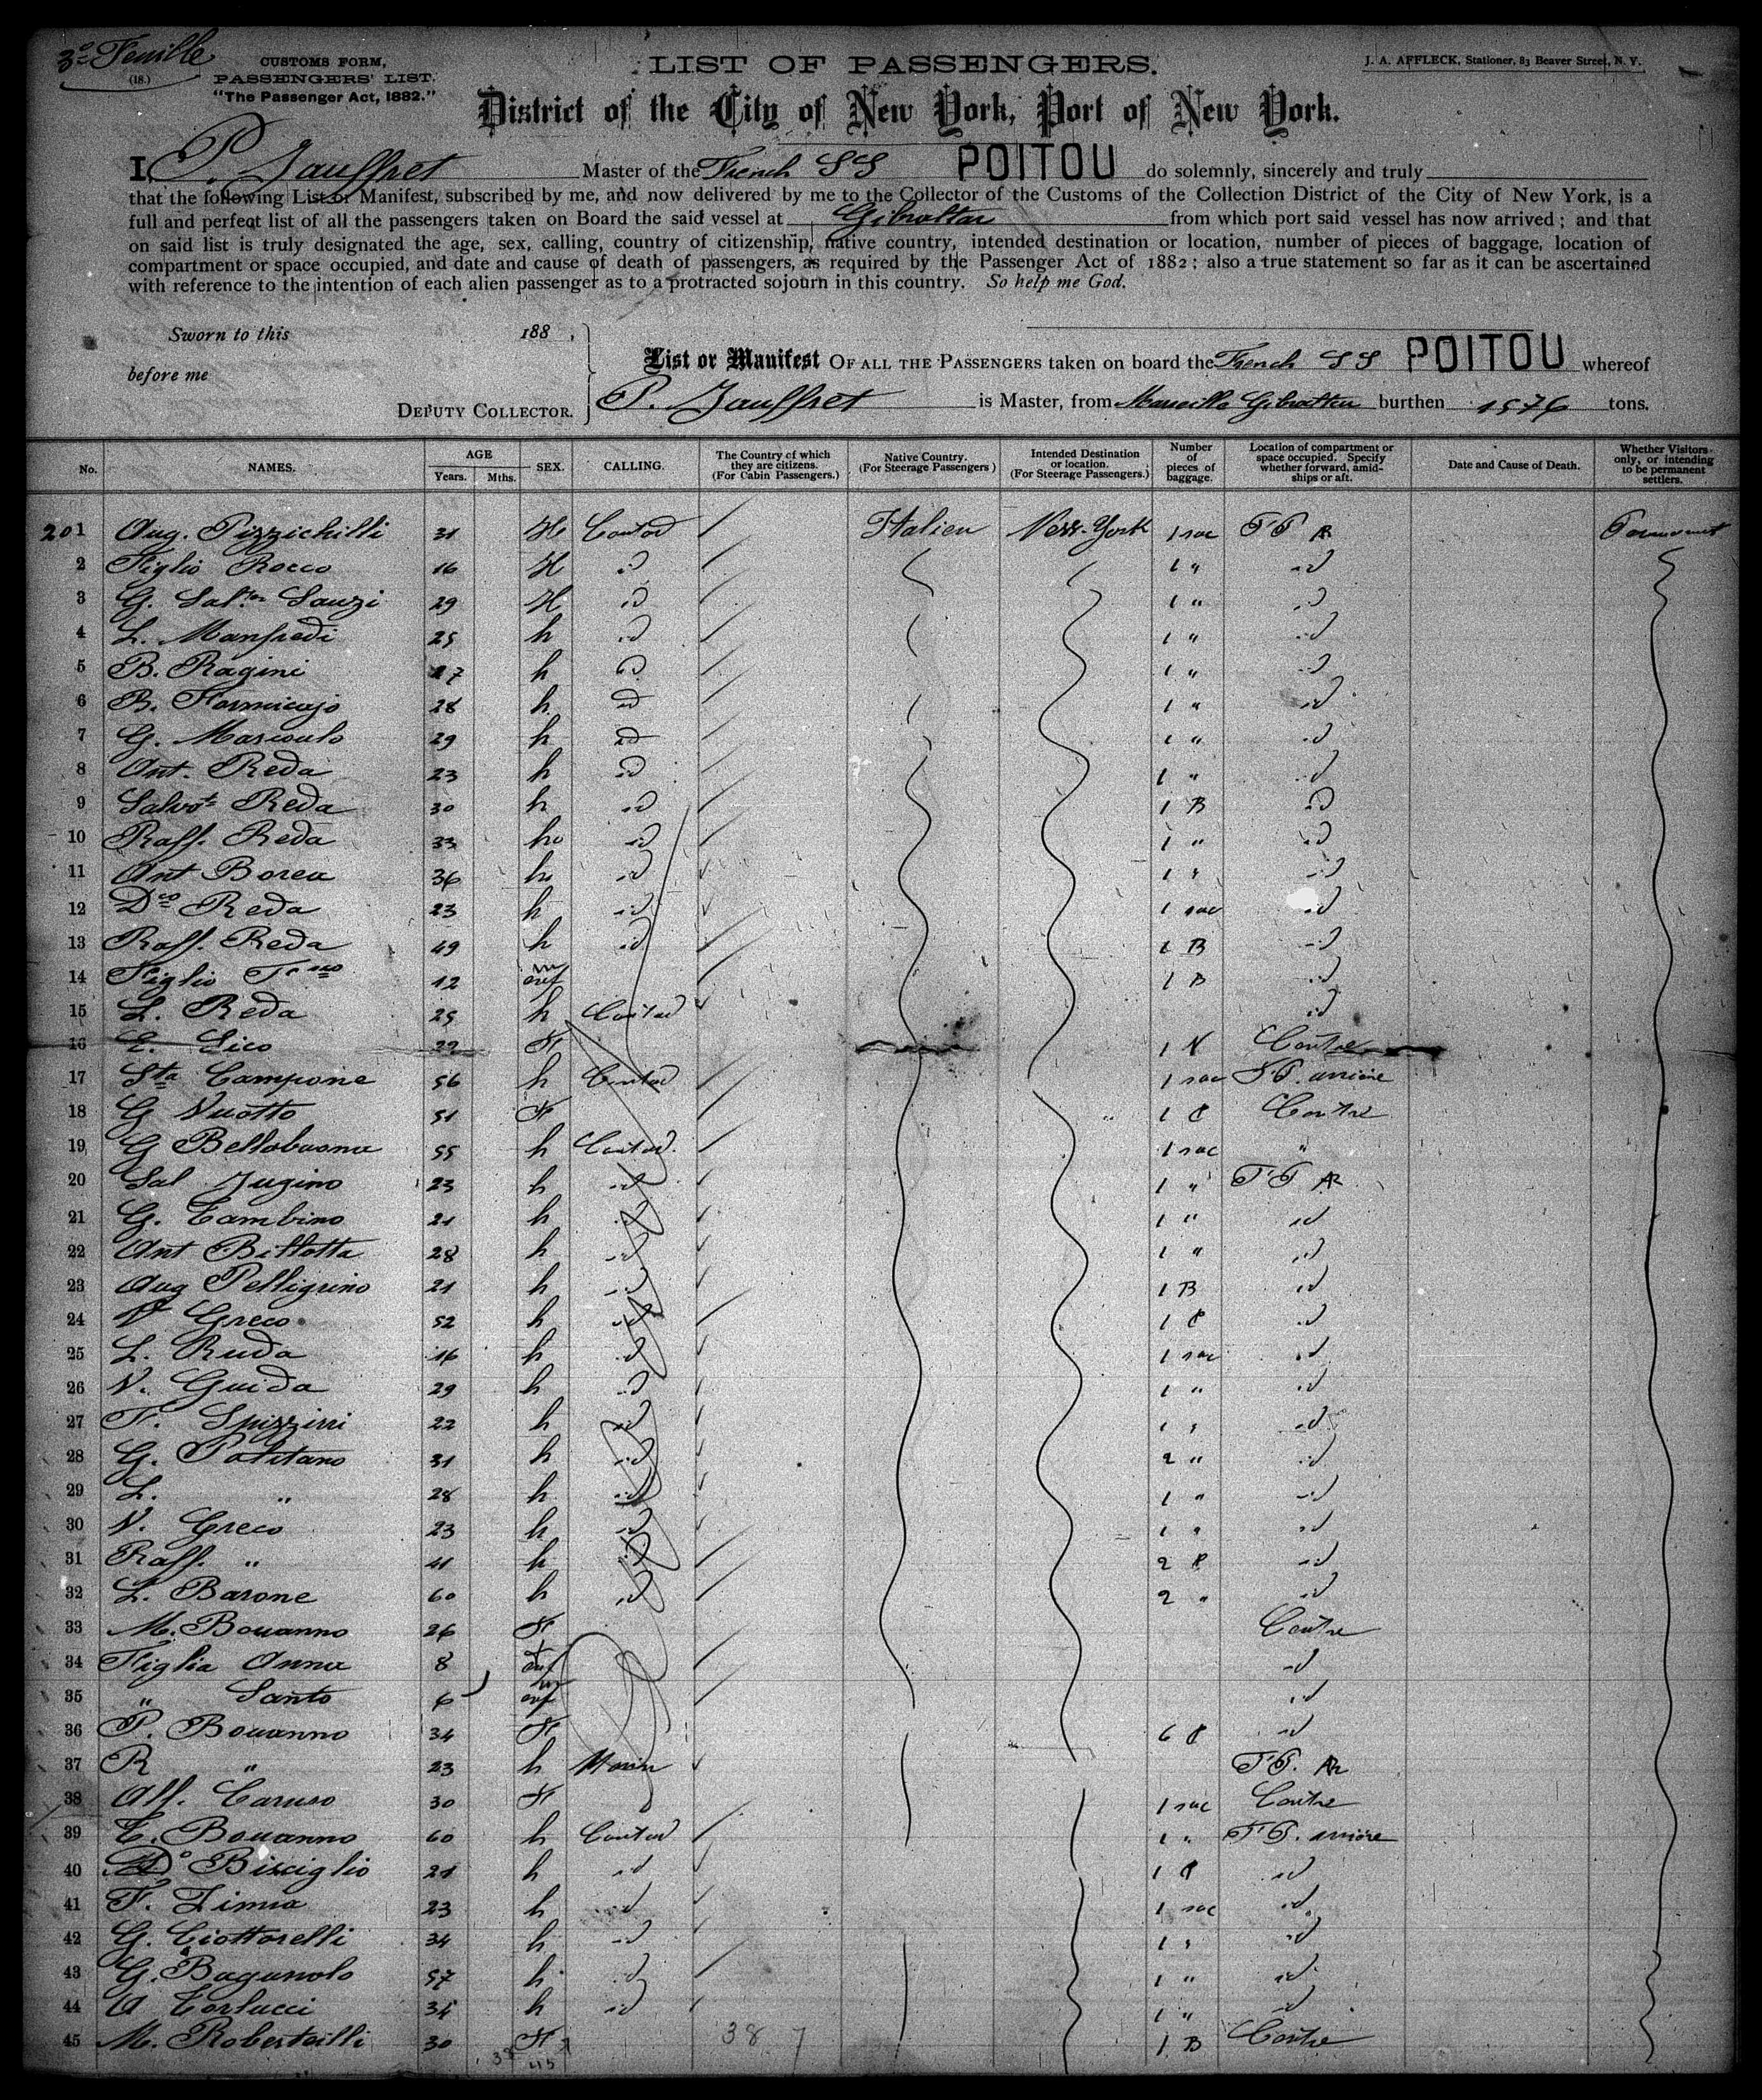 3e Feuille
(18.)
CUSTOMS FORM,
PASSENGERS' LIST.
"The Passenger Act, 1882."
LIST OF PASSENGERS.
J. A. AFFLECK, Stationer, 83 Beaver Street, N. Y.
District of the City of New York, Port of New York.
I, P. Jauffret Master of the French SS POITOU do solemnly, sincerely and truly
that the following List or Manifest, subscribed by me, and now delivered by me to the Collector of the Customs of the Collection District of the City of New York, is a
full and perfect list of all the passengers taken on Board the said vessel at Gibraltar from which port said vessel has now arrived; and that
on said list is truly designated the age, sex, calling, country of citizenship, native country, intended destination or location, number of pieces of baggage, location of
compartment or space occupied, and date and cause of death of passengers, as required by the Passenger Act of 1882; also a true statement so far as it can be ascertained
with reference to the intention of each alien passenger as to a protracted sojourn in this country. So help me God.
Sworn to this 188 ,
before me
DEPUTY COLLECTOR.
List or Manifest OF ALL THE PASSENGERS taken on board the French SS POITOU whereof
P. Jauffret is Master, from Marseille Gibraltar burthen 1576 tons.
No. NAMES. AGE Years. Mths. SEX. CALLING. The Country of which they are citizens. (For Cabin Passengers.) Native Country. (For Steerage Passengers) Intended Destination or location. (For Steerage Passengers.) Number of pieces of baggage. Location of compartment or space occupied. Specify whether forward, amidships or aft. Date and Cause of Death. Whether Visitors only, or intending to be permanent settlers.
201 Aug. Pizzichilli 31 H Contad Italien New-York 1 sac TP AR
2 Figlio Rocco 16 H id 1 " id
3 G. Salv Sauzi 29 H id 1 " id
4 L. Manfredi 25 h id 1 " id
5 B. Ragini 27 h id 1 " id
6 B. 28 h id 1 " id
7 G. 29 h id 1 " id
8 Ant. Reda 23 h id 1 " id
9 Salvo Reda 30 h id 1 B id
10 Raff. Reda 33 h id 1 " id
11 Ant Borea 36 h id 1 " id
12 Dco Reda 23 h id 1 sac id
13 Raff. Reda 49 h id 1 B id
14 Figlio 12 m enf 1 B id
15 L. Reda 25 h Contad id
16 E. Lico 22 F 1 Centre
17 Sta Campone 56 h Contad 1 sac TP. arriere
18 G Vuotto 51 F 1 C Centre
19 G Bellobuono 55 h Contad. 1 sac "
20 Sal Jugino 23 h id 1 " TP AR
21 G. Cambino 21 h id 1 " id
22 Ant Bilotta 28 h id 1 " id
23 Aug Pelligrino 21 h id 1 B id
24 V Greco 52 h id 1 C id
25 L. Ruda 16 h id 1 sac id
26 V. Guida 29 h id 1 " id
27 F. Spizzirri 22 h id 1 " id
28 G. Politano 31 h id 2 " id
29 L. " 28 h id 1 " id
30 V. Greco 23 h id 1 " id
31 Raff. " 41 h id 2 C id
32 L. Barone 60 h id 2 " id
33 M. Bouanno 26 F Centre
34 Figlia Anna 8 f enf id
35 " Santo 6 m enf id
36 P. Bouanno 34 F 6 C id
37 R " 23 h TP. AR
38 Alf. Caruso 30 F 1 sac Centre
39 C. Bouanno 60 h Contad 1 " TP. arriere
40 Do Bisciglio 21 h id 1 C id
41 F. Zimma 23 h id 1 sac id
42 G. Ciottorelli 34 h id 1 " id
43 G. Bagunolo 57 h id 1 " id
44 A Corlucci 34 h id 1 " id
45 M. Robertcilli 30 F 1 B Centre
38 7
45